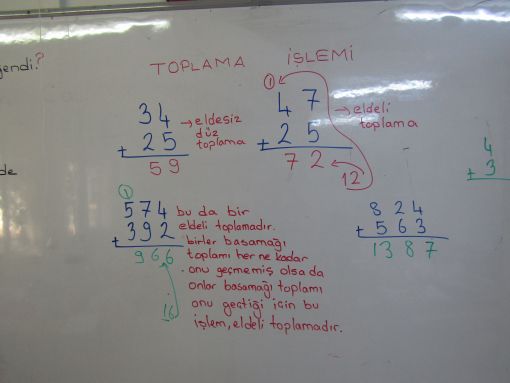 gendi?
TOPLAMA İŞLEMİ
34
+ 25
59
→ eldesiz
düz
toplama
1
47
+ 25
72
12
→ eldeli
toplama
de
4
+ 3
1
574
+ 392
966
16
bu da bir
eldeli toplamadır.
birler basamağı
toplamı her ne kadar
onu geçmemiş olsa da
onlar basamağı toplamı
onu geçtiği için bu
işlem, eldeli toplamadır.
824
+ 563
1387